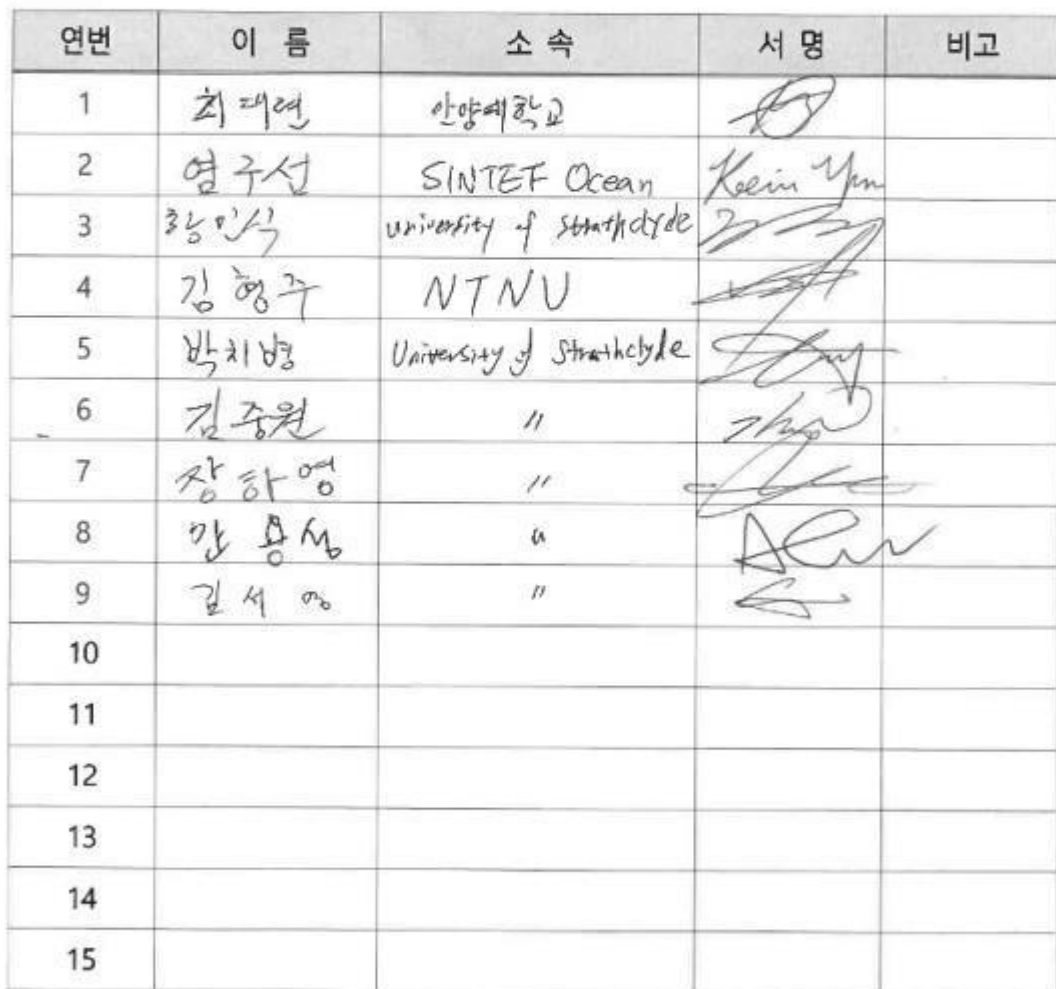 연번 이 름 소 속 서 명 비고
1 최대련 안양대학교
2 염구선 SINTEF Ocean Kevin Yum
3 황민식 university of strathclyde
4 김형주 NTNU
5 박치병 University of Strathclyde
6 김중원 〃
7 장하영 〃
8 안용성 〃
9 김서영 〃
10
11
12
13
14
15